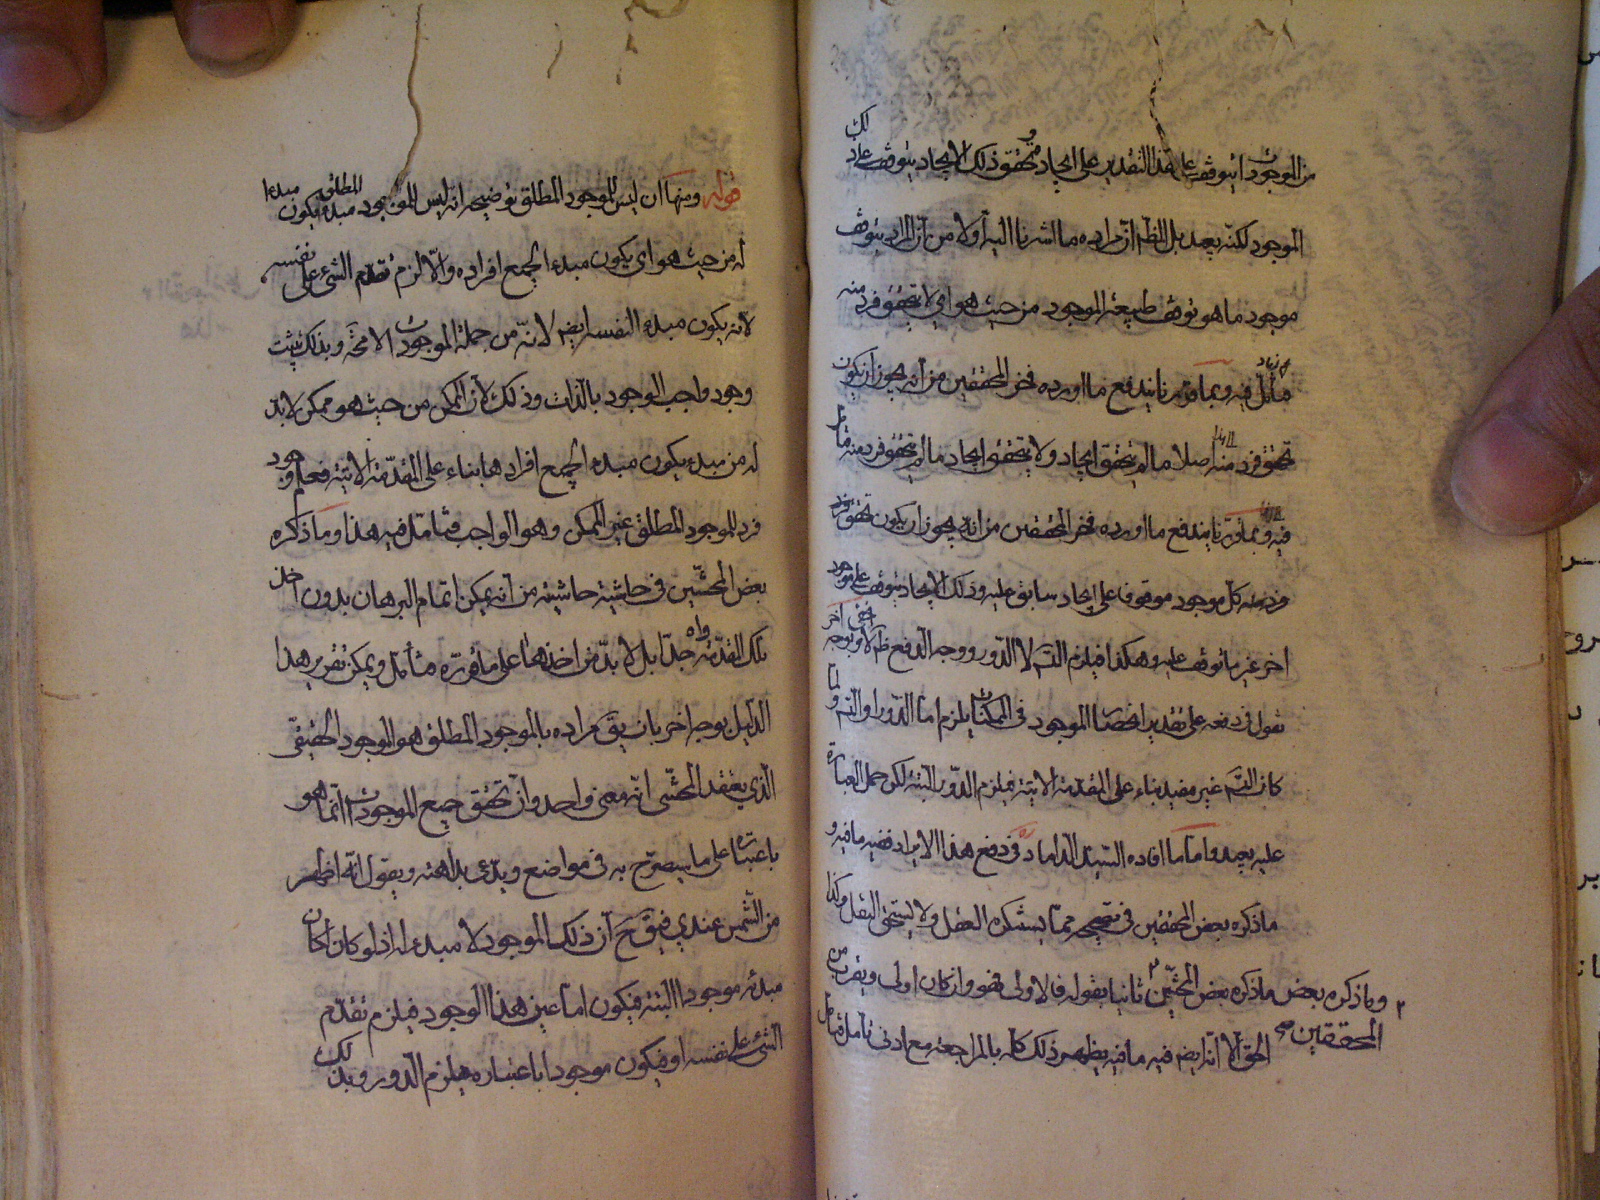 من الموجودات اذ يتوقف على هذا التقدير على ايجاد وتحقق ذلك الايجاد يتوقف على ذلك
الموجود لكنه بعيد بل الظ ان مراده ما اشرنا اليه اولا من ان المراد يتوقف
موجود ما هو توقف طبيعة الموجود من حيث هو اي لا تحقق فرد منه
فتأمل فيه وبما قررنا يندفع ما اورده فخر المحققين من انه يجوز ان يكون
تحقق فرد منه اصلا ما لم يتحقق ايجاد ولا يتحقق ايجاد ما لم يتحقق فرد منه فتأمل
فيه وبما قررنا يندفع ما اورده فخر المحققين من انه يجوز ان يكون تحقق فرد
فرد منه كل موجود موقوف على ايجاد سابق عليه وذلك الايجاد يتوقف على موجود
اخر غير ما توقف عليه وهكذا فيلزم التس لا الدور ووجه الدفع ظ
نقول في دفعه على تقدير انحصار الموجود في الممكنات يلزم اما الدور او التس ولما
كان التس غير مفيد بناء على المقدمة الاتية فيلزم الدور البتة لكن حمل العبارة
عليه بعيد واما ما افاده السيد الداماد ره في دفع هذا الايراد ففيه ما فيه و
ما ذكره بعض المحققين في تصحيحه مما يستنكره العقل ولا يستحق النقل وكذا
ما ذكره بعض المحشين ثانيا بقوله فالاولى فهو وان كان اولى ويقرب من
الحق الا انه ايض فيه ما فيه يظهر ذلك كله بالمراجعة مع ادنى تأمل فتأمل
وما ذكره بعض
المحققين صح
قوله ومنها ان ليس للموجود المطلق توضيحه انه ليس للموجود المطلق مبدء يكون مبدءا
له من حيث هو اي يكون مبدء الجميع افراده والا لزم تقدم الشئ على نفسه
لانه يكون مبدء لنفسه ايض لانه من جملة الموجودات الامحة وبذلك يثبت
وجود واجب الوجود بالذات وذلك لان الممكن من حيث هو ممكن لا بد
له من مبدء يكون مبدء الجميع افرادها بناء على المقدمة الاتية فعلم وجود
فرد للموجود المطلق غير الممكن وهو الواجب فتأمل فيه هذا وما ذكره
بعض المحشين في حاشية حاشيته من انه يمكن اتمام البرهان بدون اخذ
تلك المقدمة واه جدا بل لا بد من اخذها على ما قرره فتأمل ويمكن تقرير هذا
الدليل بوجه اخر بان يق مراده بالموجود المطلق هو الموجود الحقيقي
الذي يعتقد المحشى انه معنى واحد وان تحقق جميع الموجودات انما هو
باعتباره على ما سيصرح به في مواضع ويدعى بداهته ويقول انه اظهر
من الشمس عندي فيق ح ان ذلك الموجود لا مبدء له اذ لو كان لكان
مبدئه موجودا البتة فيكون اما عين هذا الموجود فيلزم تقدم
الشئ على نفسه او فيكون موجودا باعتباره فيلزم الدور وبذلك